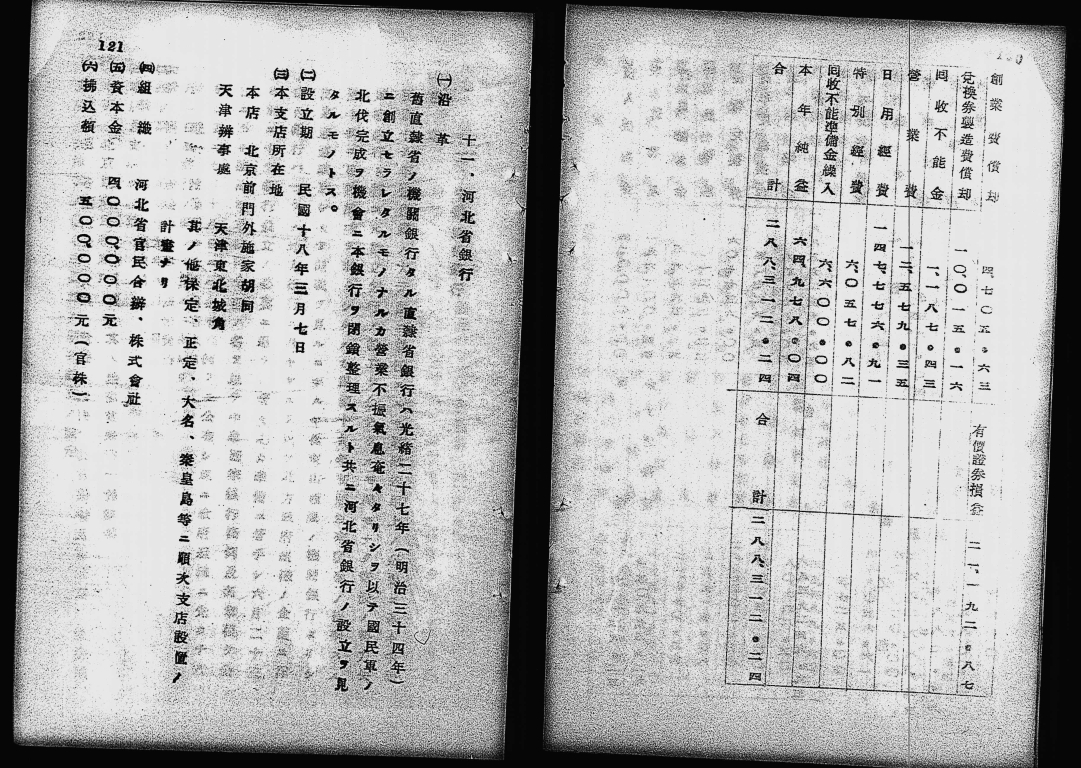 創業費償却 四、七〇五・六三 有價證券損益 二一、一九二・八七
兌換券製造費償却 一〇、〇一五・一六
回收不能金 一、一八七・四三
營業費 一二、五七九・三五
日用經費 一四七、七七六・九一
特別經費 六、〇五七・八二
回收不能準備金繰入 六、六〇〇・〇〇
本年純益 六四、九七八・〇四
合計 二八八、三一二・二四 合計 二八八、三一二・二四
121
十一、河北省銀行
㈠沿革
舊直隸省ノ機關銀行タル直隸省銀行ハ光緒二十七年（明治三十四年）
ニ創立セラレタルモノナルカ營業不振氣息奄々タリシヲ以テ國民軍ノ
北伐完成ヲ機會ニ本銀行ヲ閉鎖整理スルト共ニ河北省銀行ノ設立ヲ見
タルモノトス。
㈡設立期 民國十八年三月七日
㈢本支店所在地
本店 北京前門外施家胡同
天津辨事處 天津東北城角
其ノ他保定、正定、大名、秦皇島等ニ順次支店設置ノ
計畫ナリ
㈣組織 河北省官民合辦、株式會社
㈤資本金 四、〇〇〇、〇〇〇元
㈥拂込額 五〇〇、〇〇〇元（官株）